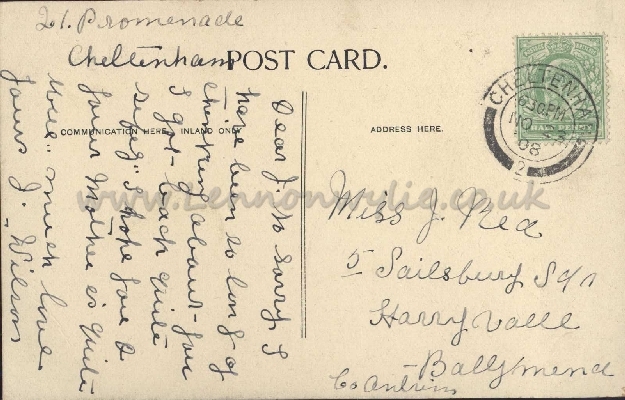 21. Promenade
Cheltenham
POST CARD.
COMMUNICATION HERE. INLAND ONLY
ADDRESS HERE.
CHELTENHAM
6.30PM
MO
08
2
HALFPENNY
Dear J. So Sorry I
have been so long of
thinking about you
I got back quite
safely I hope you &
your Mother is quite
well much love
yours J. Wilson
Miss J. Rea
5 Sailsbury Sqr
Harryvalle
Ballymena
Co Antrim
www.Lennonwylie.co.uk